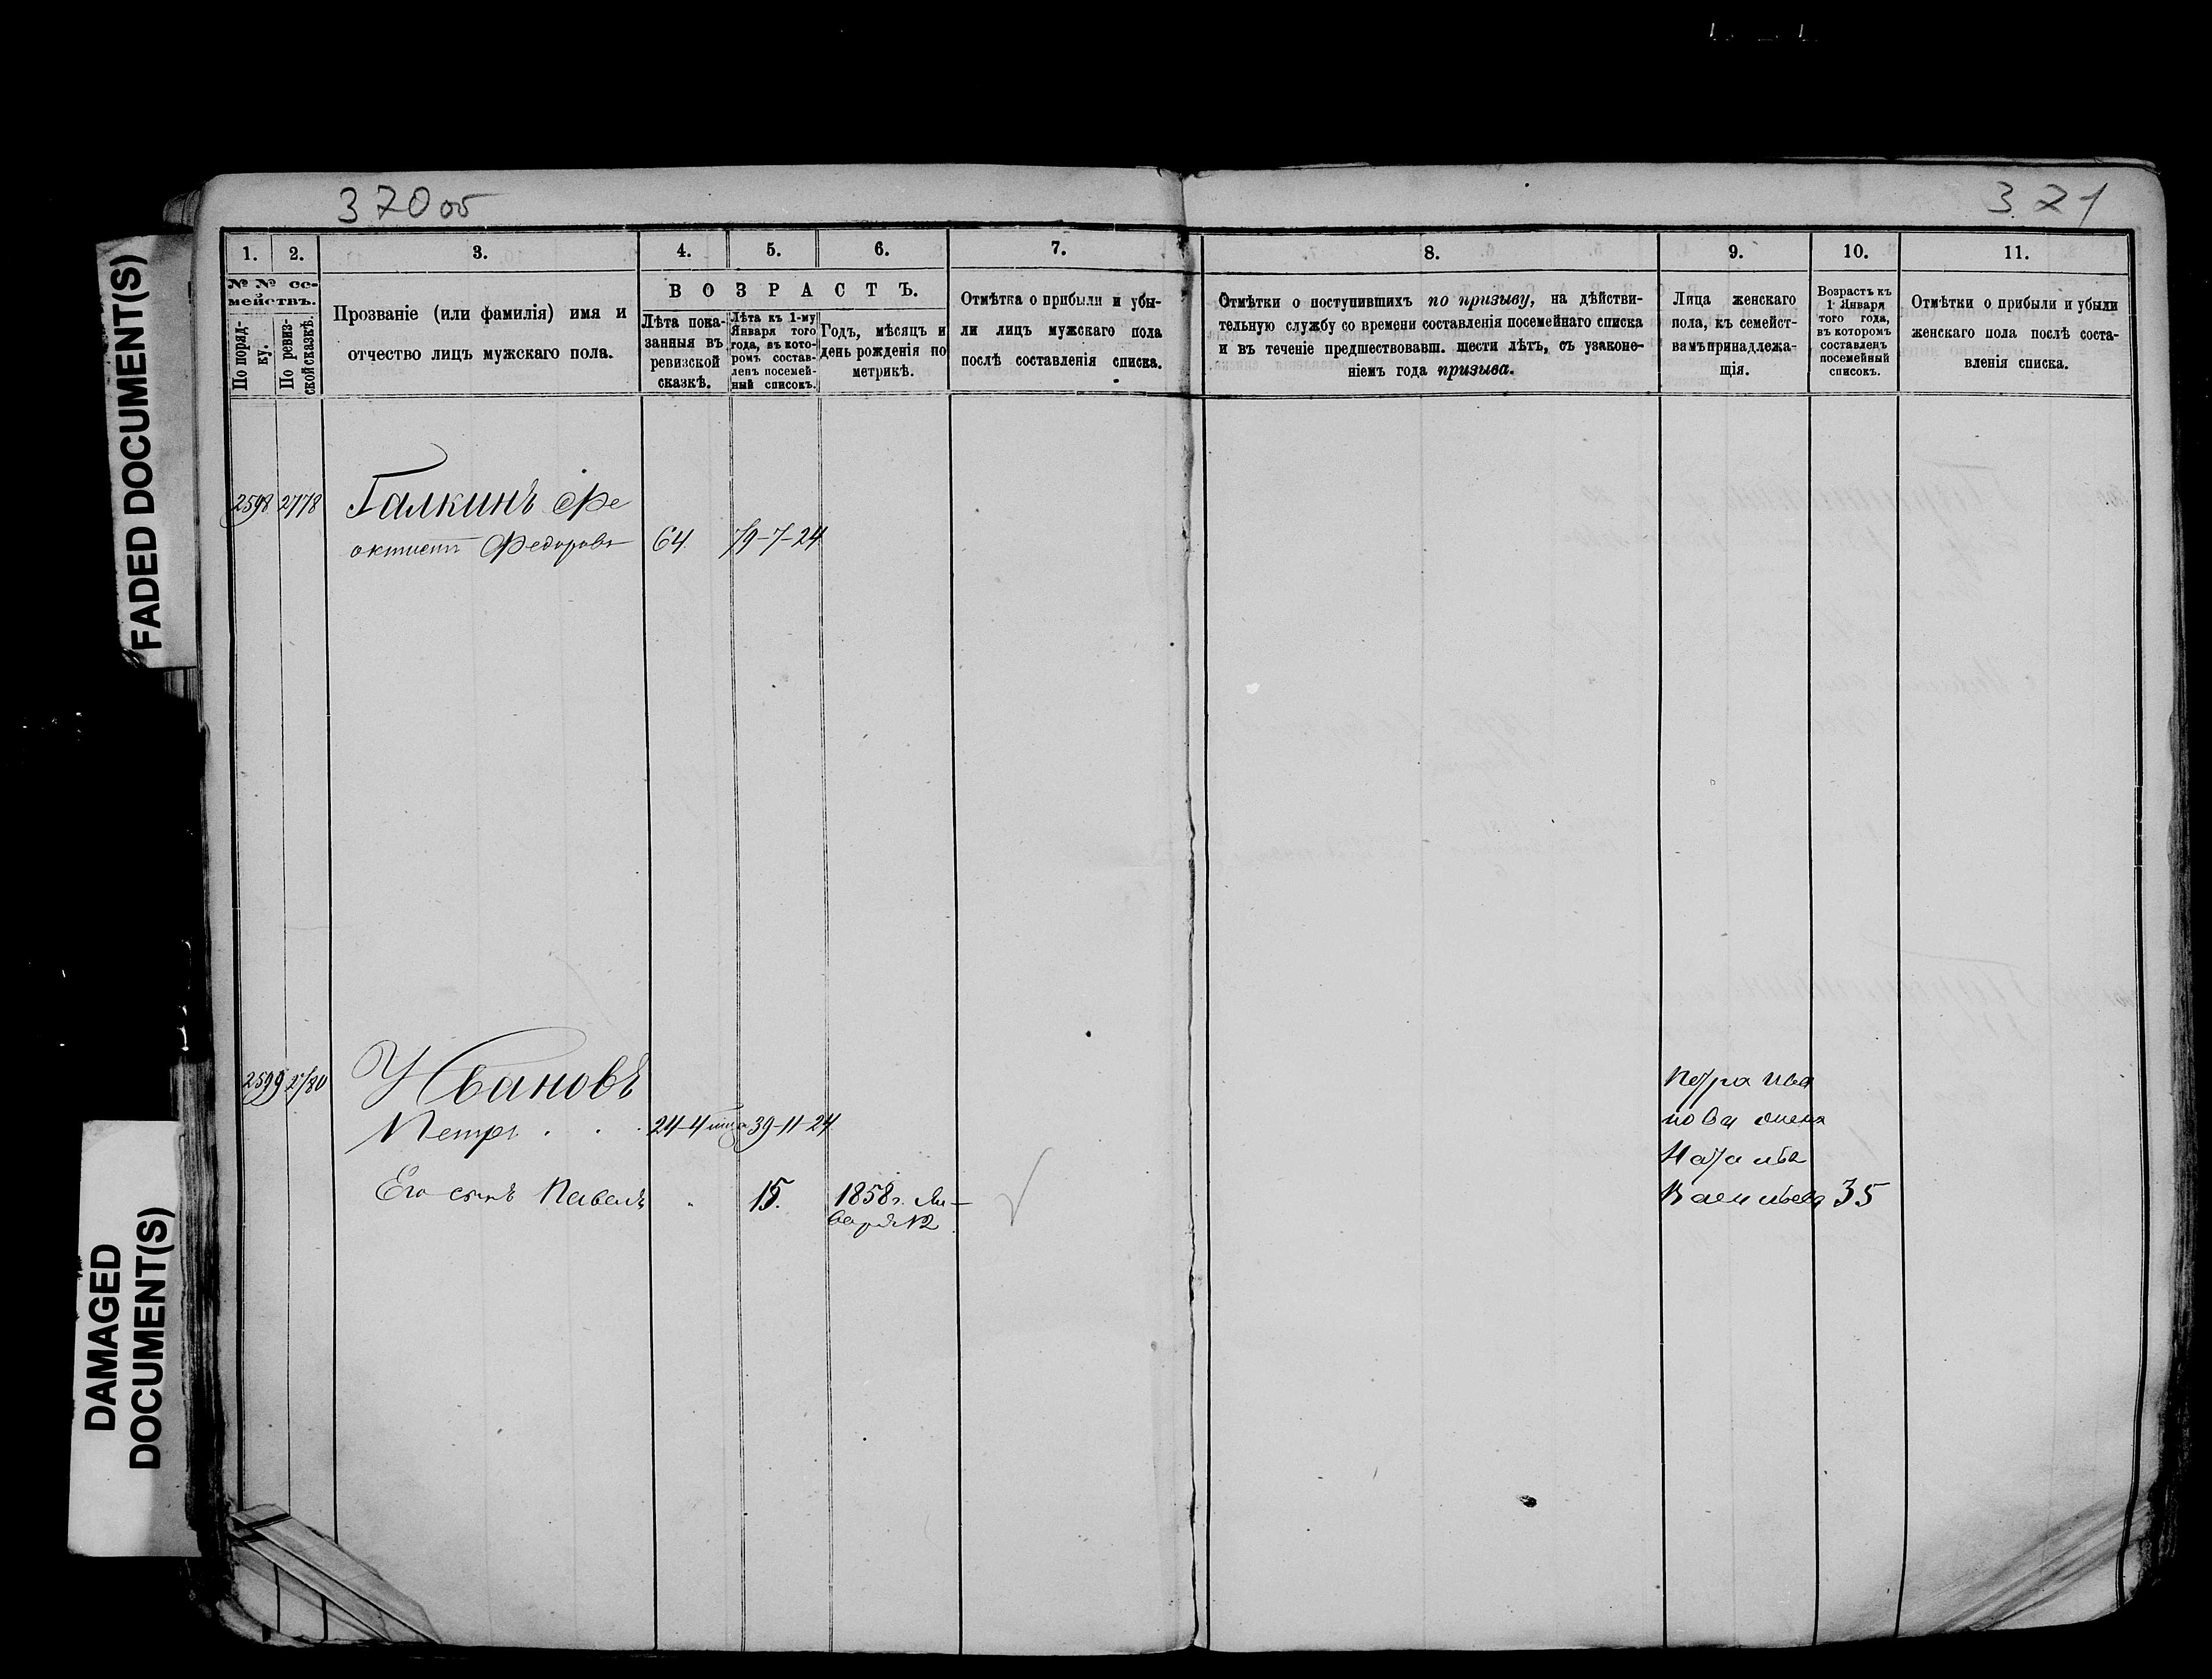 370 об
371
FADED DOCUMENT(S)
DAMAGED
DOCUMENT(S)
1. 2. 3. 4. 5. 6. 7. 8. 9. 10. 11.
№ № се-
мействъ.
По поряд-
ку.
По ревиз-
ской сказкѣ.
Прозваніе (или фамилія) имя и
отчество лицъ мужскаго пола.
ВОЗРАСТЪ.
Лѣта пока-
занныя въ
ревизской
сказкѣ.
Лѣта къ 1-му
Января того
года, въ кото-
ромъ состав-
ленъ посемей-
ный списокъ.
Годъ, мѣсяцъ и
день рожденія по
метрикѣ.
Отмѣтка о прибыли и убы-
ли лицъ мужскаго пола
послѣ составленія списка.
Отмѣтки о поступившихъ по призыву, на дѣйстви-
тельную службу со времени составленія посемейнаго списка
и въ теченіе предшествовавш. шести лѣтъ, съ узаконе-
ніемъ года призыва.
Лица женскаго
пола, къ семейст-
вамъ принадлежа-
щія.
Возрастъ къ
1 Января
того года,
въ которомъ
составленъ
посемейный
списокъ.
Отмѣтки о прибыли и убыли
женскаго пола послѣ соста-
вленія списка.
2598 2778 Галкинъ Фе
октистъ Федоровъ 64 79-7-24
2599 2780 Ивановъ
Петръ . . . 24-4 39-11-24
Его сынъ Павелъ " 15. 1858 г. Ян-
варя 12
Петра Ива
нова жена
Наталья
Васильева 35